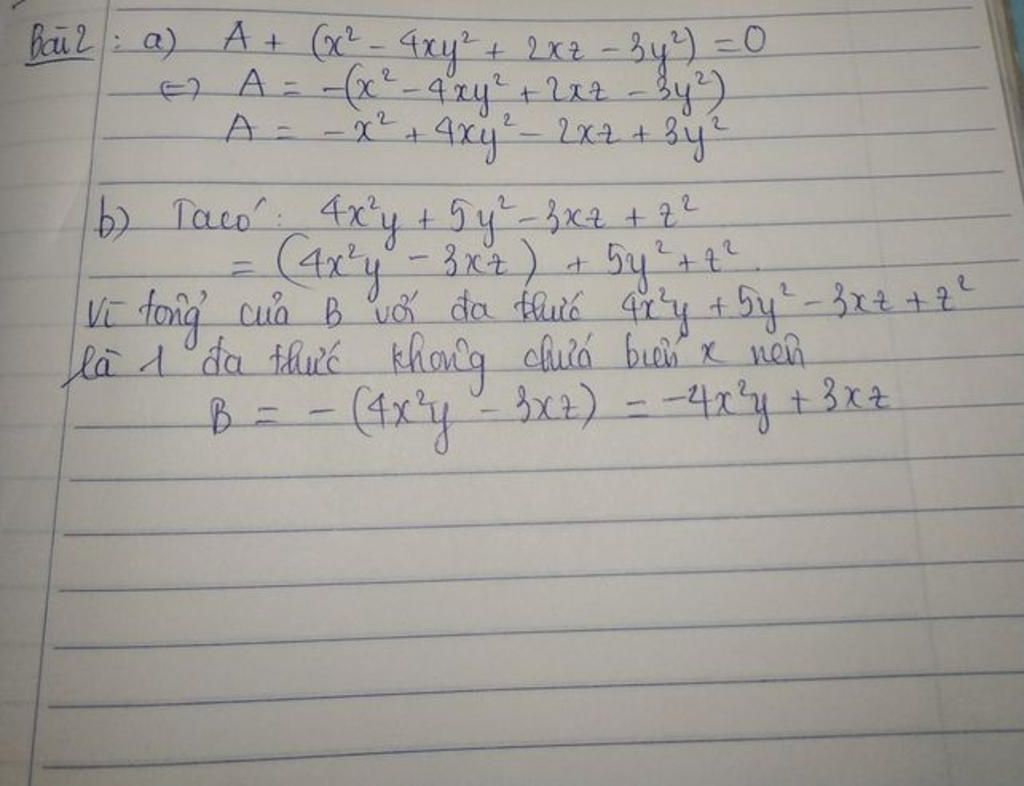 Bài 2 : a) A + (x² - 4xy² + 2xz - 3y²) = 0
⇔ A = -(x² - 4xy² + 2xz - 3y²)
A = -x² + 4xy² - 2xz + 3y²
b) Ta có : 4x²y + 5y² - 3xz + z²
= (4x²y - 3xz) + 5y² + z².
Vì tổng của B với đa thức 4x²y + 5y² - 3xz + z²
là 1 đa thức không chứa biến x nên
B = - (4x²y - 3xz) = -4x²y + 3xz